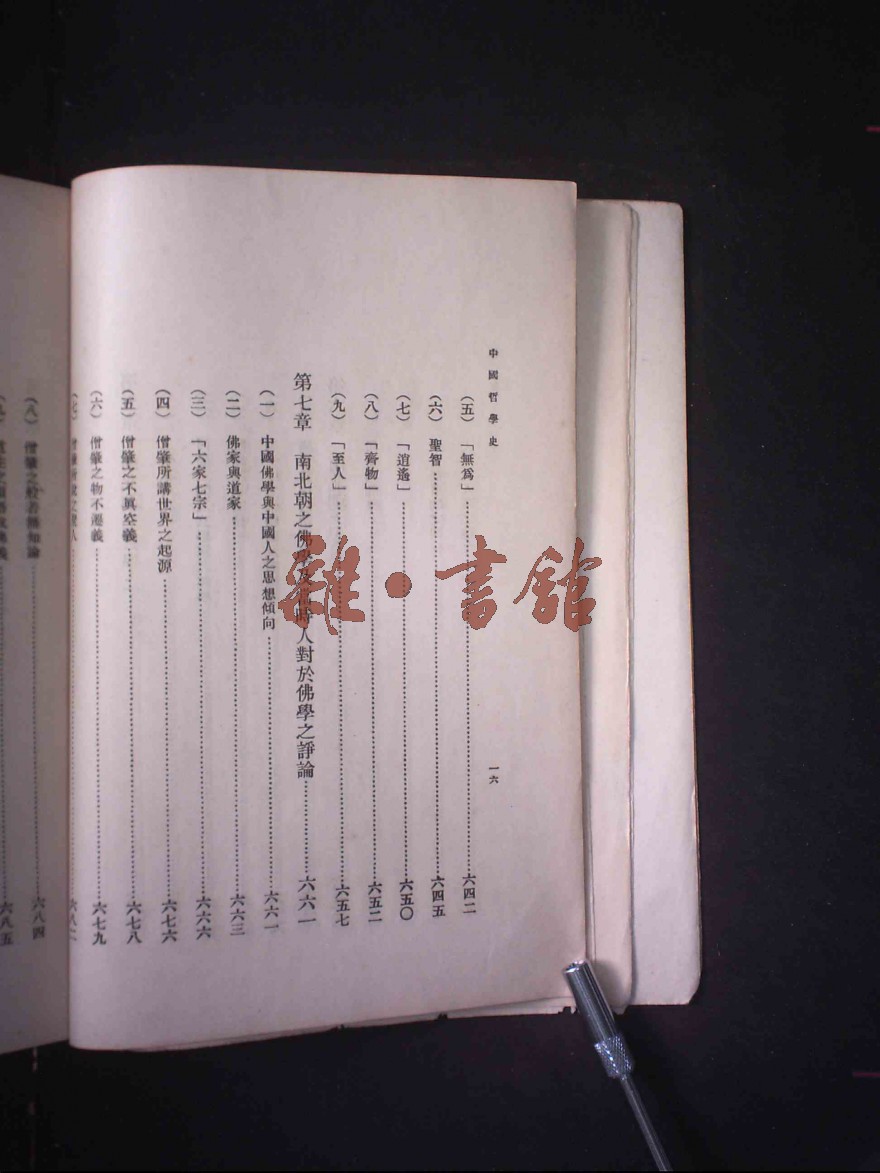 中國哲學史
一六
（五）「無爲」……六四二
（六）聖智……六四五
（七）「逍遙」……六五〇
（八）「齊物」……六五二
（九）「至人」……六五七
第七章 南北朝之佛學及當時人對於佛學之諍論……六六一
（一）中國佛學與中國人之思想傾向……六六一
（二）佛家與道家……六六三
（三）「六家七宗」……六六六
（四）僧肇所講世界之起源……六七六
（五）僧肇之不眞空義……六七八
（六）僧肇之物不遷義……六七九
（七）僧肇所說之聖人……六八二
（八）僧肇之般若無知論……六八四
六八五
雜·書館